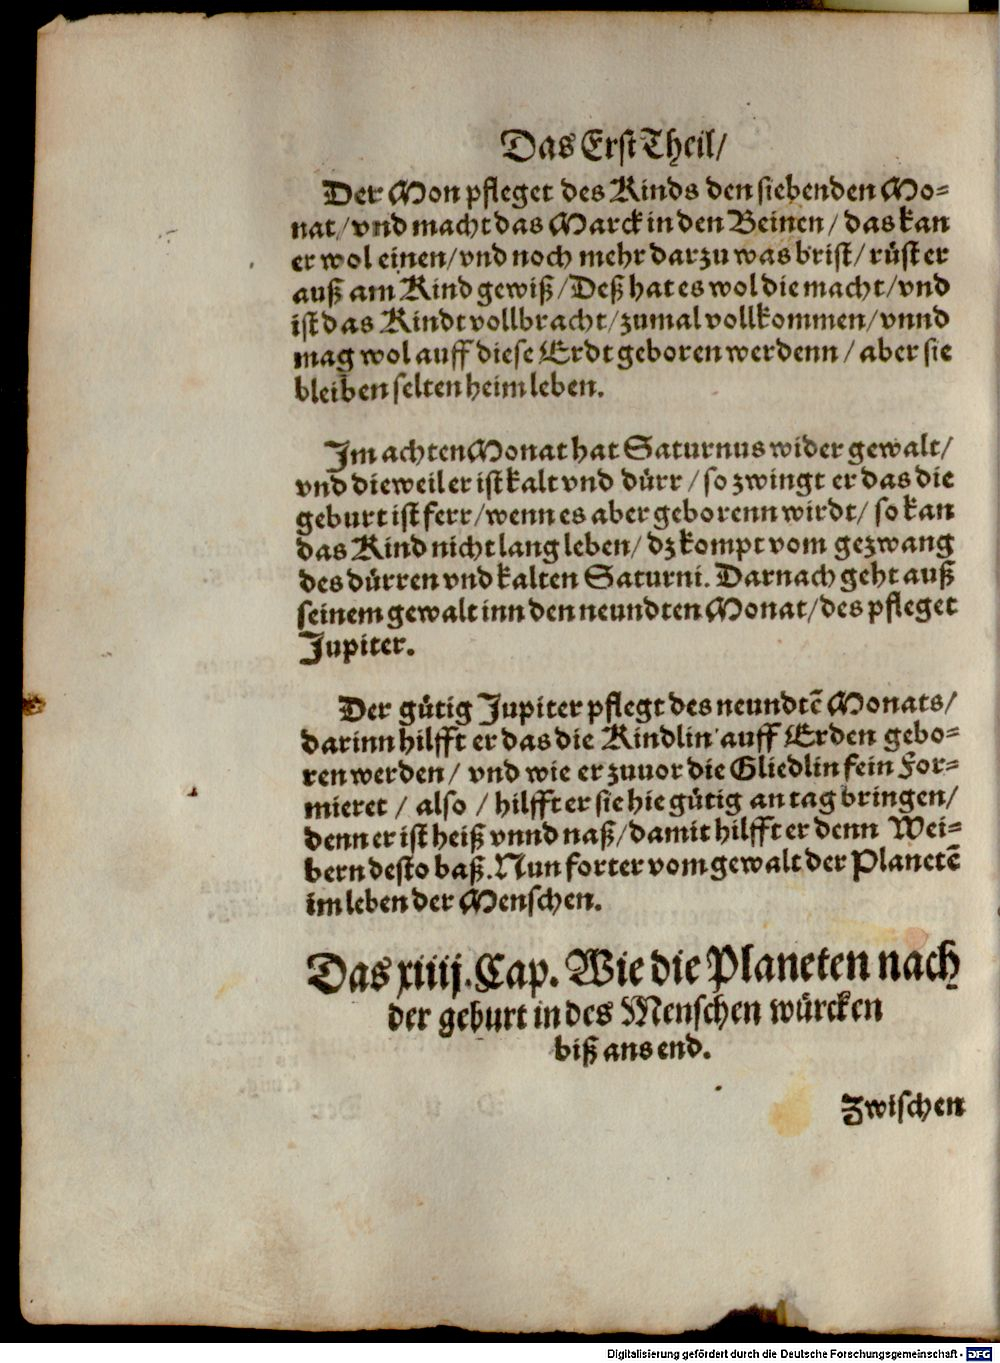 Das Erst Theil/
Der Mon pfleget des Kinds den siebenden Mo-
nat/ vnd macht das Marck in den Beinen/ das kan
er wol einen/ vnd noch mehr darzu was brist/ rüst er
auß am Kind gewiß/ Deß hat es wol die macht/ vnd
ist das Kindt vollbracht/ zumal vollkommen/ vnnd
mag wol auff diese Erdt geboren werdenn/ aber sie
bleiben selten heim leben.
Im achten Monat hat Saturnus wider gewalt/
vnd dieweil er ist kalt vnd dürr/ so zwingt er das die
geburt ist ferr/ wenn es aber geborenn wirdt/ so kan
das Kind nicht lang leben/ dz kompt vom gezwang
des dürren vnd kalten Saturni. Darnach geht auß
seinem gewalt inn den neundten Monat/ des pfleget
Jupiter.
Der gütig Jupiter pflegt des neundtẽ Monats/
darinn hilfft er das die Kindlin auff Erden gebo-
ren werden/ vnd wie er zuuor die Gliedlin fein For-
mieret/ also/ hilfft er sie hie gütig an tag bringen/
denn er ist heiß vnnd naß/ damit hilfft er denn Wei-
bern desto baß. Nun forter vom gewalt der Planetẽ
im leben der Menschen.
Das xiiij. Cap. Wie die Planeten nach
der geburt in des Menschen würcken
biß ans end.
Zwischen
Digitalisierung gefördert durch die Deutsche Forschungsgemeinschaft - DFG